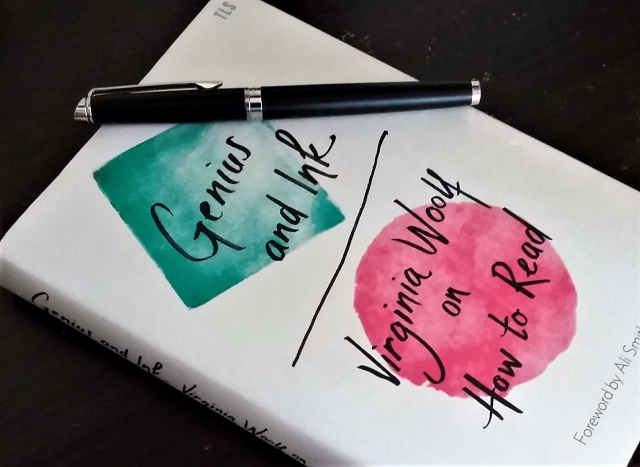 TLS
Genius
and Ink
Virginia Woolf
on
How to Read
Foreword by Ali Smith
Genius and Ink Virginia Woolf on